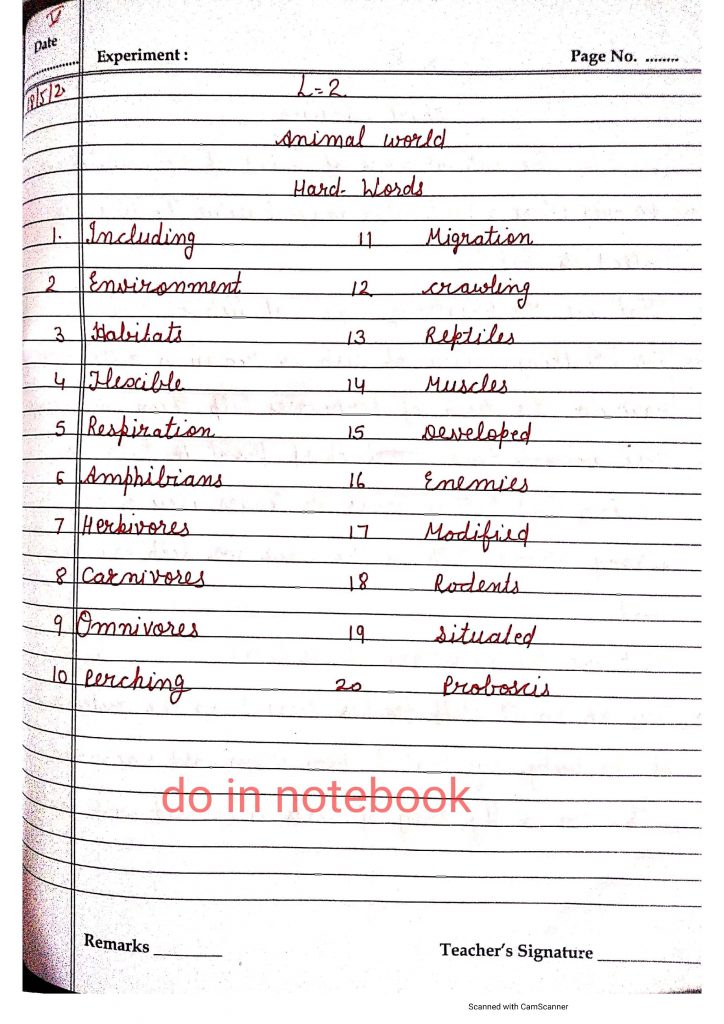 V
Date
Experiment : Page No. ........
18/5/2
L=2
Animal world
Hard- Words
1. Including 11 Migration
2 Environment 12 crawling
3 Habitats 13 Reptiles
4 Flexible 14 Muscles
5 Respiration 15 Developed
6 Amphibians 16 Enemies
7 Herbivores 17 Modified
8 Carnivores 18 Rodents
9 Omnivores 19 situated
10 Perching 20 Proboscis
do in notebook
Remarks ________ Teacher's Signature ____________
Scanned with CamScanner